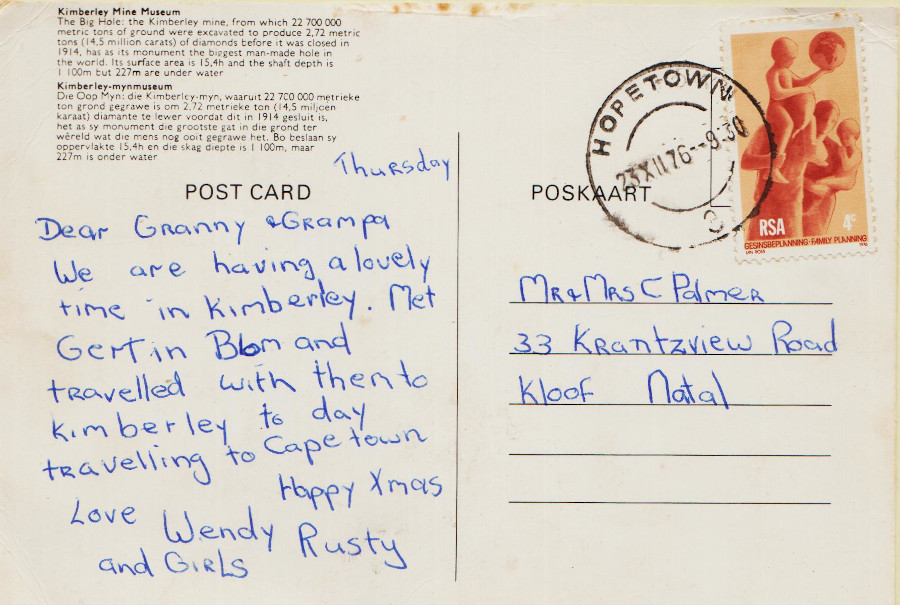 Kimberley Mine Museum
The Big Hole: the Kimberley mine, from which 22 700 000
metric tons of ground were excavated to produce 2,72 metric
tons (14,5 million carats) of diamonds before it was closed in
1914, has as its monument the biggest man-made hole in
the world. Its surface area is 15,4h and the shaft depth is
1 100m but 227m are under water
Kimberley-mynmuseum
Die Oop Myn: die Kimberley-myn, waaruit 22 700 000 metrieke
ton grond gegrawe is om 2,72 metrieke ton (14,5 miljoen
karaat) diamante te lewer voordat dit in 1914 gesluit is,
het as sy monument die grootste gat in die grond ter
wêreld wat die mens nog ooit gegrawe het. Bo beslaan sy
oppervlakte 15,4h en die skag diepte is 1 100m, maar
227m is onder water
Thursday
POST CARD
Dear Granny & Grampa
We are having a lovely
time in Kimberley. Met
Gert in Blom and
travelled with them to
Kimberley to day
travelling to Cape town
Happy Xmas
Love
Wendy Rusty
and Girls
POSKAART
HOPETOWN
23 XII 76--9.30
RSA 4c
GESINSBEPLANNING·FAMILY PLANNING
Mr & Mrs C Palmer
33 Krantzview Road
Kloof Natal